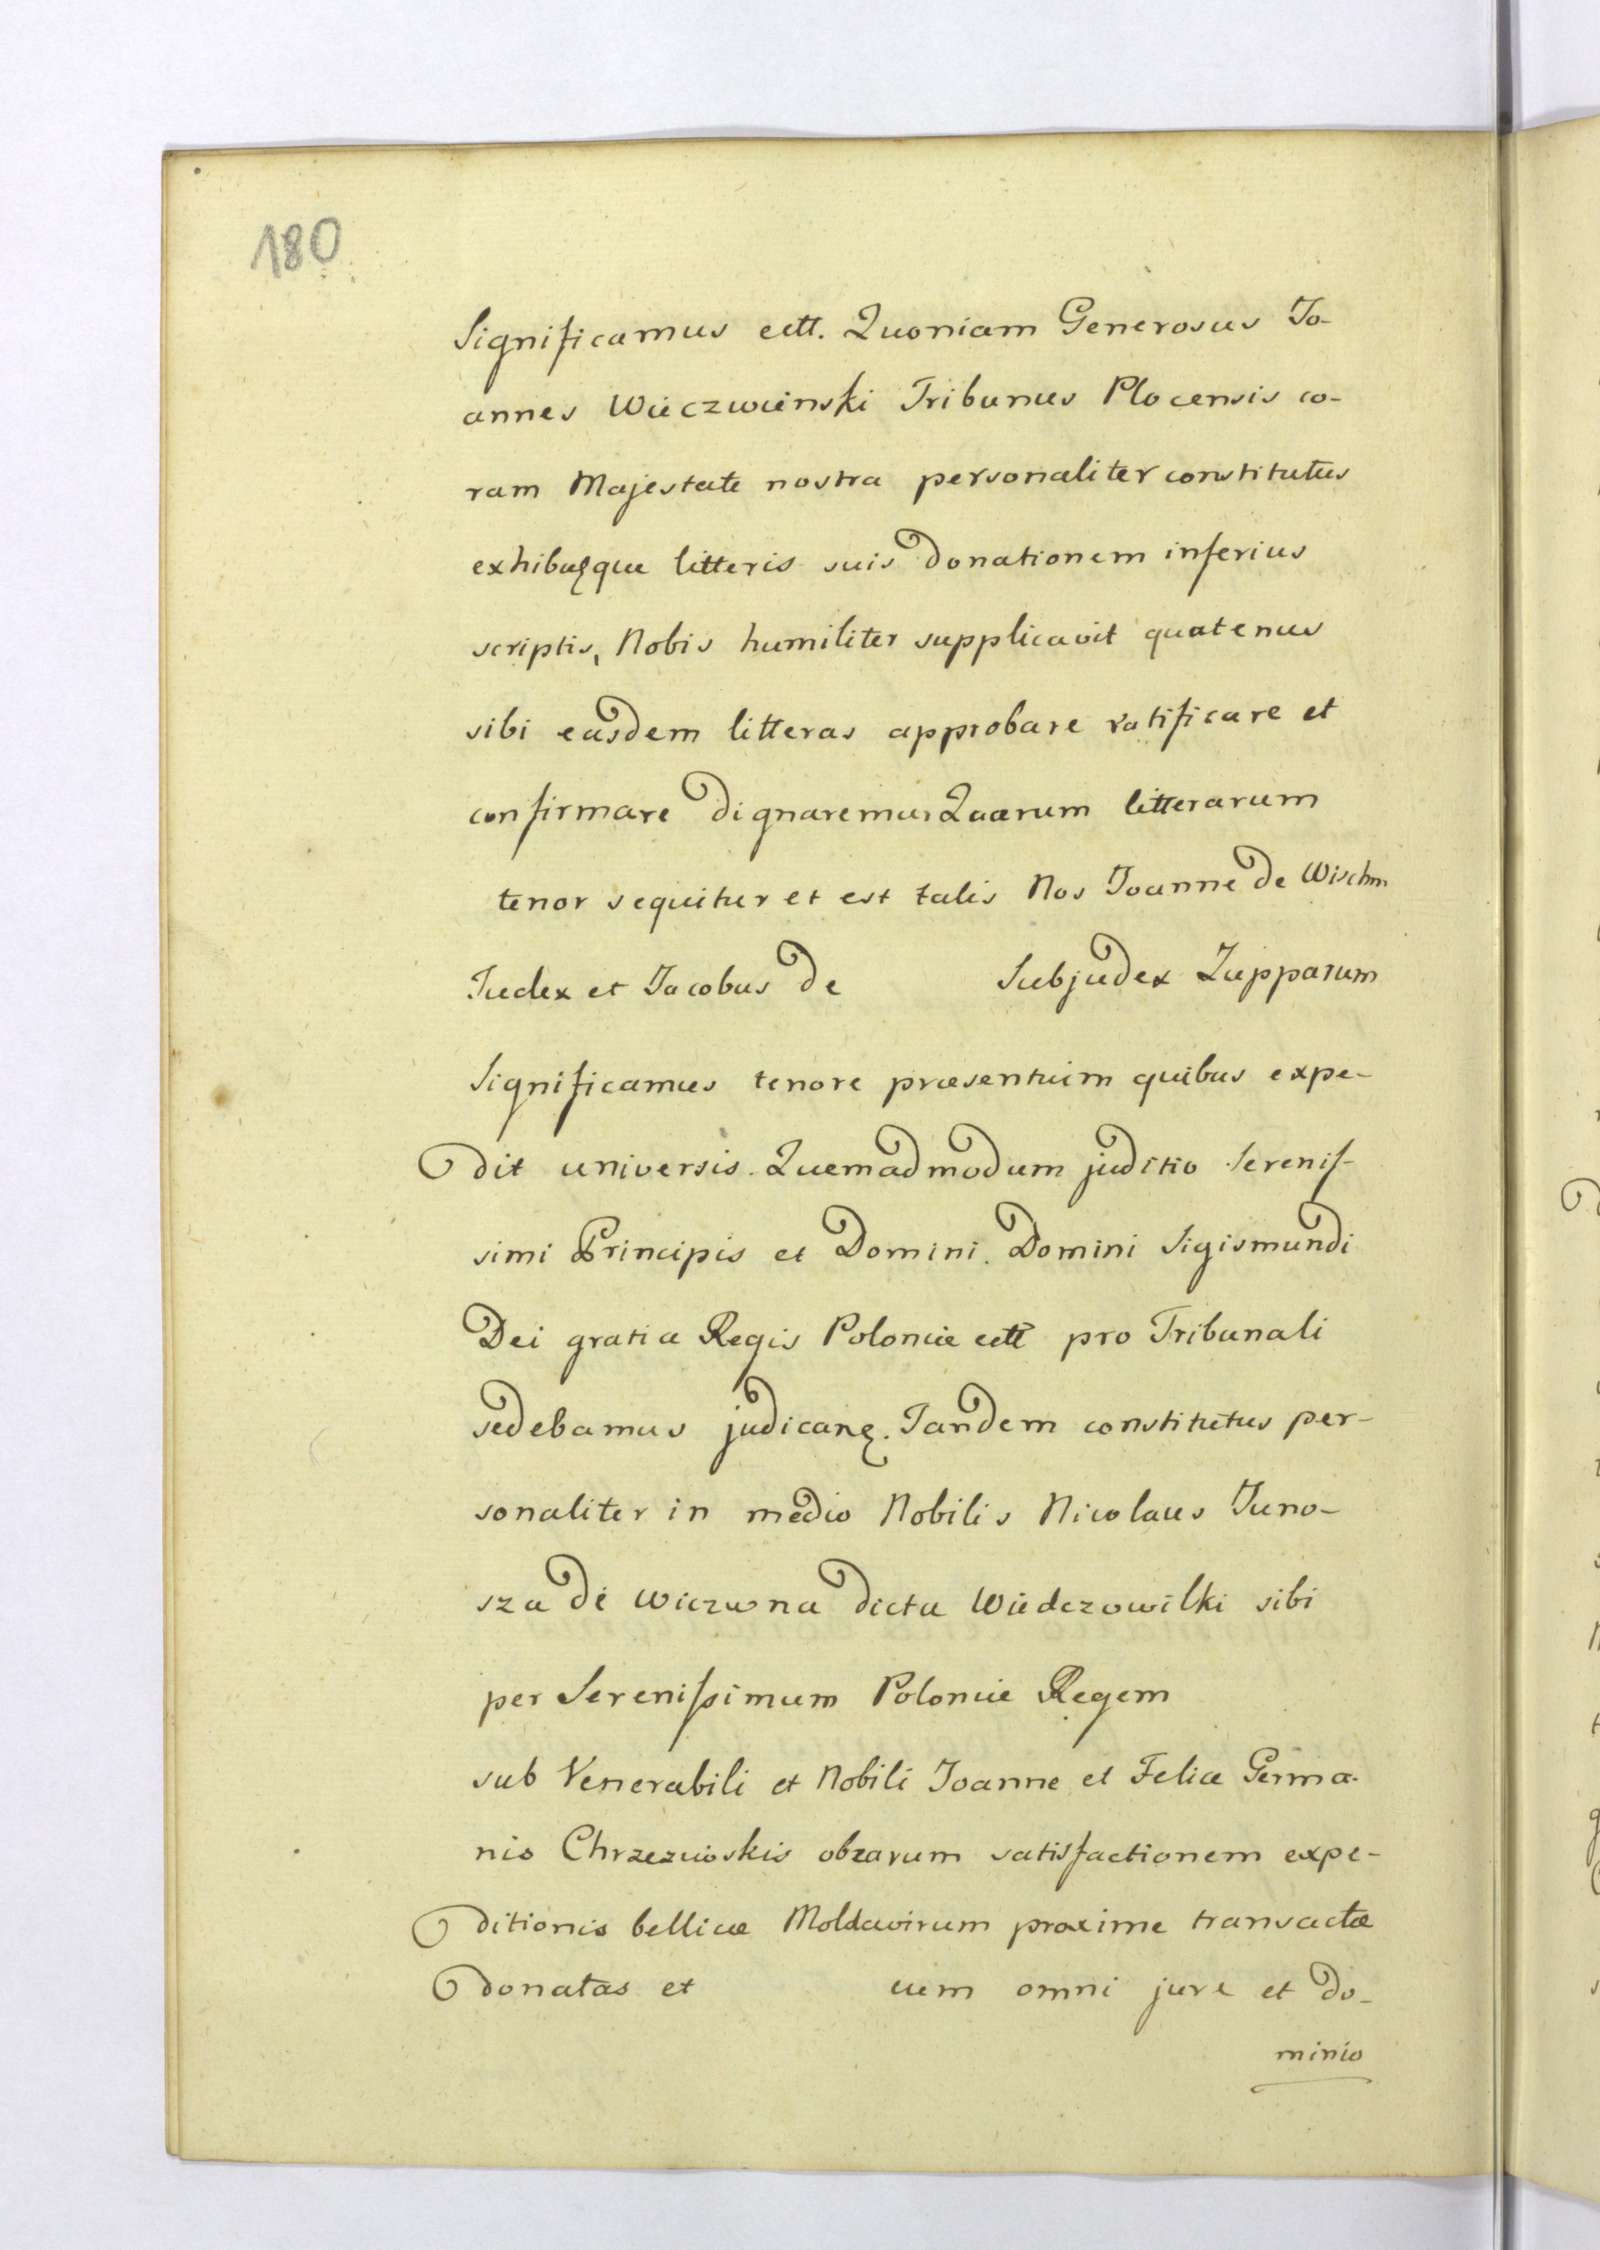 180
Significamus ectt. Quoniam Generosus Jo-
annes Wieczwienski Tribunus Plocensis co-
ram Majestate nostra personaliter constitutus
litteris suis donationem inferius
scriptis, Nobis humiliter supplicavit quatenus
sibi easdem litteras approbare ratificare et
confirmare dignaremur Quarum litterarum
tenor sequitur et est talis Nos Joanne de
Judex et Jacobus de Subjudex Zupparum
Significamus tenore præsentium quibus expe-
dit universis. Quemadmodum juditio Serenis-
simi Principis et Domini. Domini Sigismundi
Dei gratia Regis Poloniæ ectt pro Tribunali
sedebamus Tandem constitutus per-
sonaliter in medio Nobilis Nicolaus Juno-
sza de Wiczwna dicta Wiedczowilki sibi
per Serenissimum Poloniæ Regem
sub Venerabili et Nobili Joanne et Felice Germa-
nis satisfactionem expe-
ditionis bellicæ proxime transactæ
donatas et cum omni jure et do-
minio